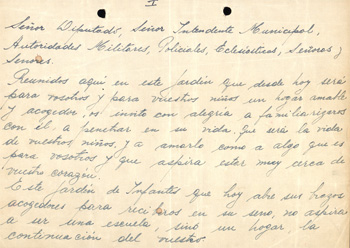 I
Señor Diputado, Señor Intendente Municipal,
Autoridades Militares, Policiales, Eclesiasticas, Señoras y
Señores.
Reunidos aquí en este jardin que desde hoy será
para vosotros y para vuestros niños un hogar amable
y acogedor, os invito con alegria a familiarizaros
con él, a penetrar en su vida. Que será la vida
de vuestros niños, y a amarlo como a algo que es
para vosotros y que aspira estar muy cerca de
vuestro corazón.
Este Jardin de Infantes que hoy abre sus brazos
acogedores para recibiros en su seno, no aspira
a ser una escuela, sinó un hogar, la
continuación del vuestro.